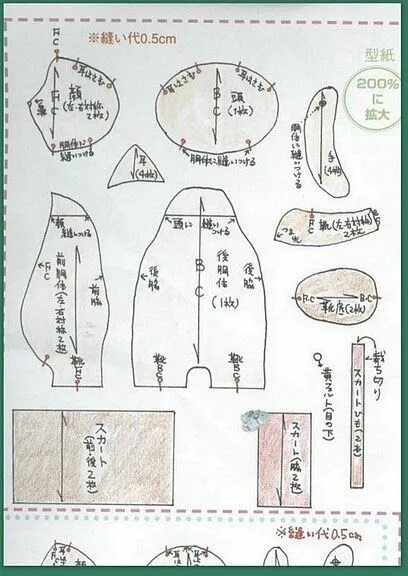 ※縫い代0.5cm
型紙
200%
に
拡大
F.C
耳はさむ
鼻
顔
(左・右対称
2枚)
F
C
胴体に
縫いつける
耳はさむ
耳はさむ
B
C
頭
(1枚)
胴体に縫いつける
耳
(4枚)
胴体に縫いつける
手
(4枚)
F.C
靴(左右対称)
2枚
B.C
つま先
頭
縫いつける
F.C
前胴体(左・右対称2枚)
前脇
靴
F.C
頭に
縫いつける
後脇
B
C
後胴体
(1枚)
後脇
靴
B.C
靴
B.C
F.C
B.C
靴底(2枚)
裁ち切り
スカートひも(2本)
黄フェルト(目の下)
スカート
(前・後2枚)
スカート
(脇2枚)
※縫い代0.5cm
F
C
耳は
耳は
耳は